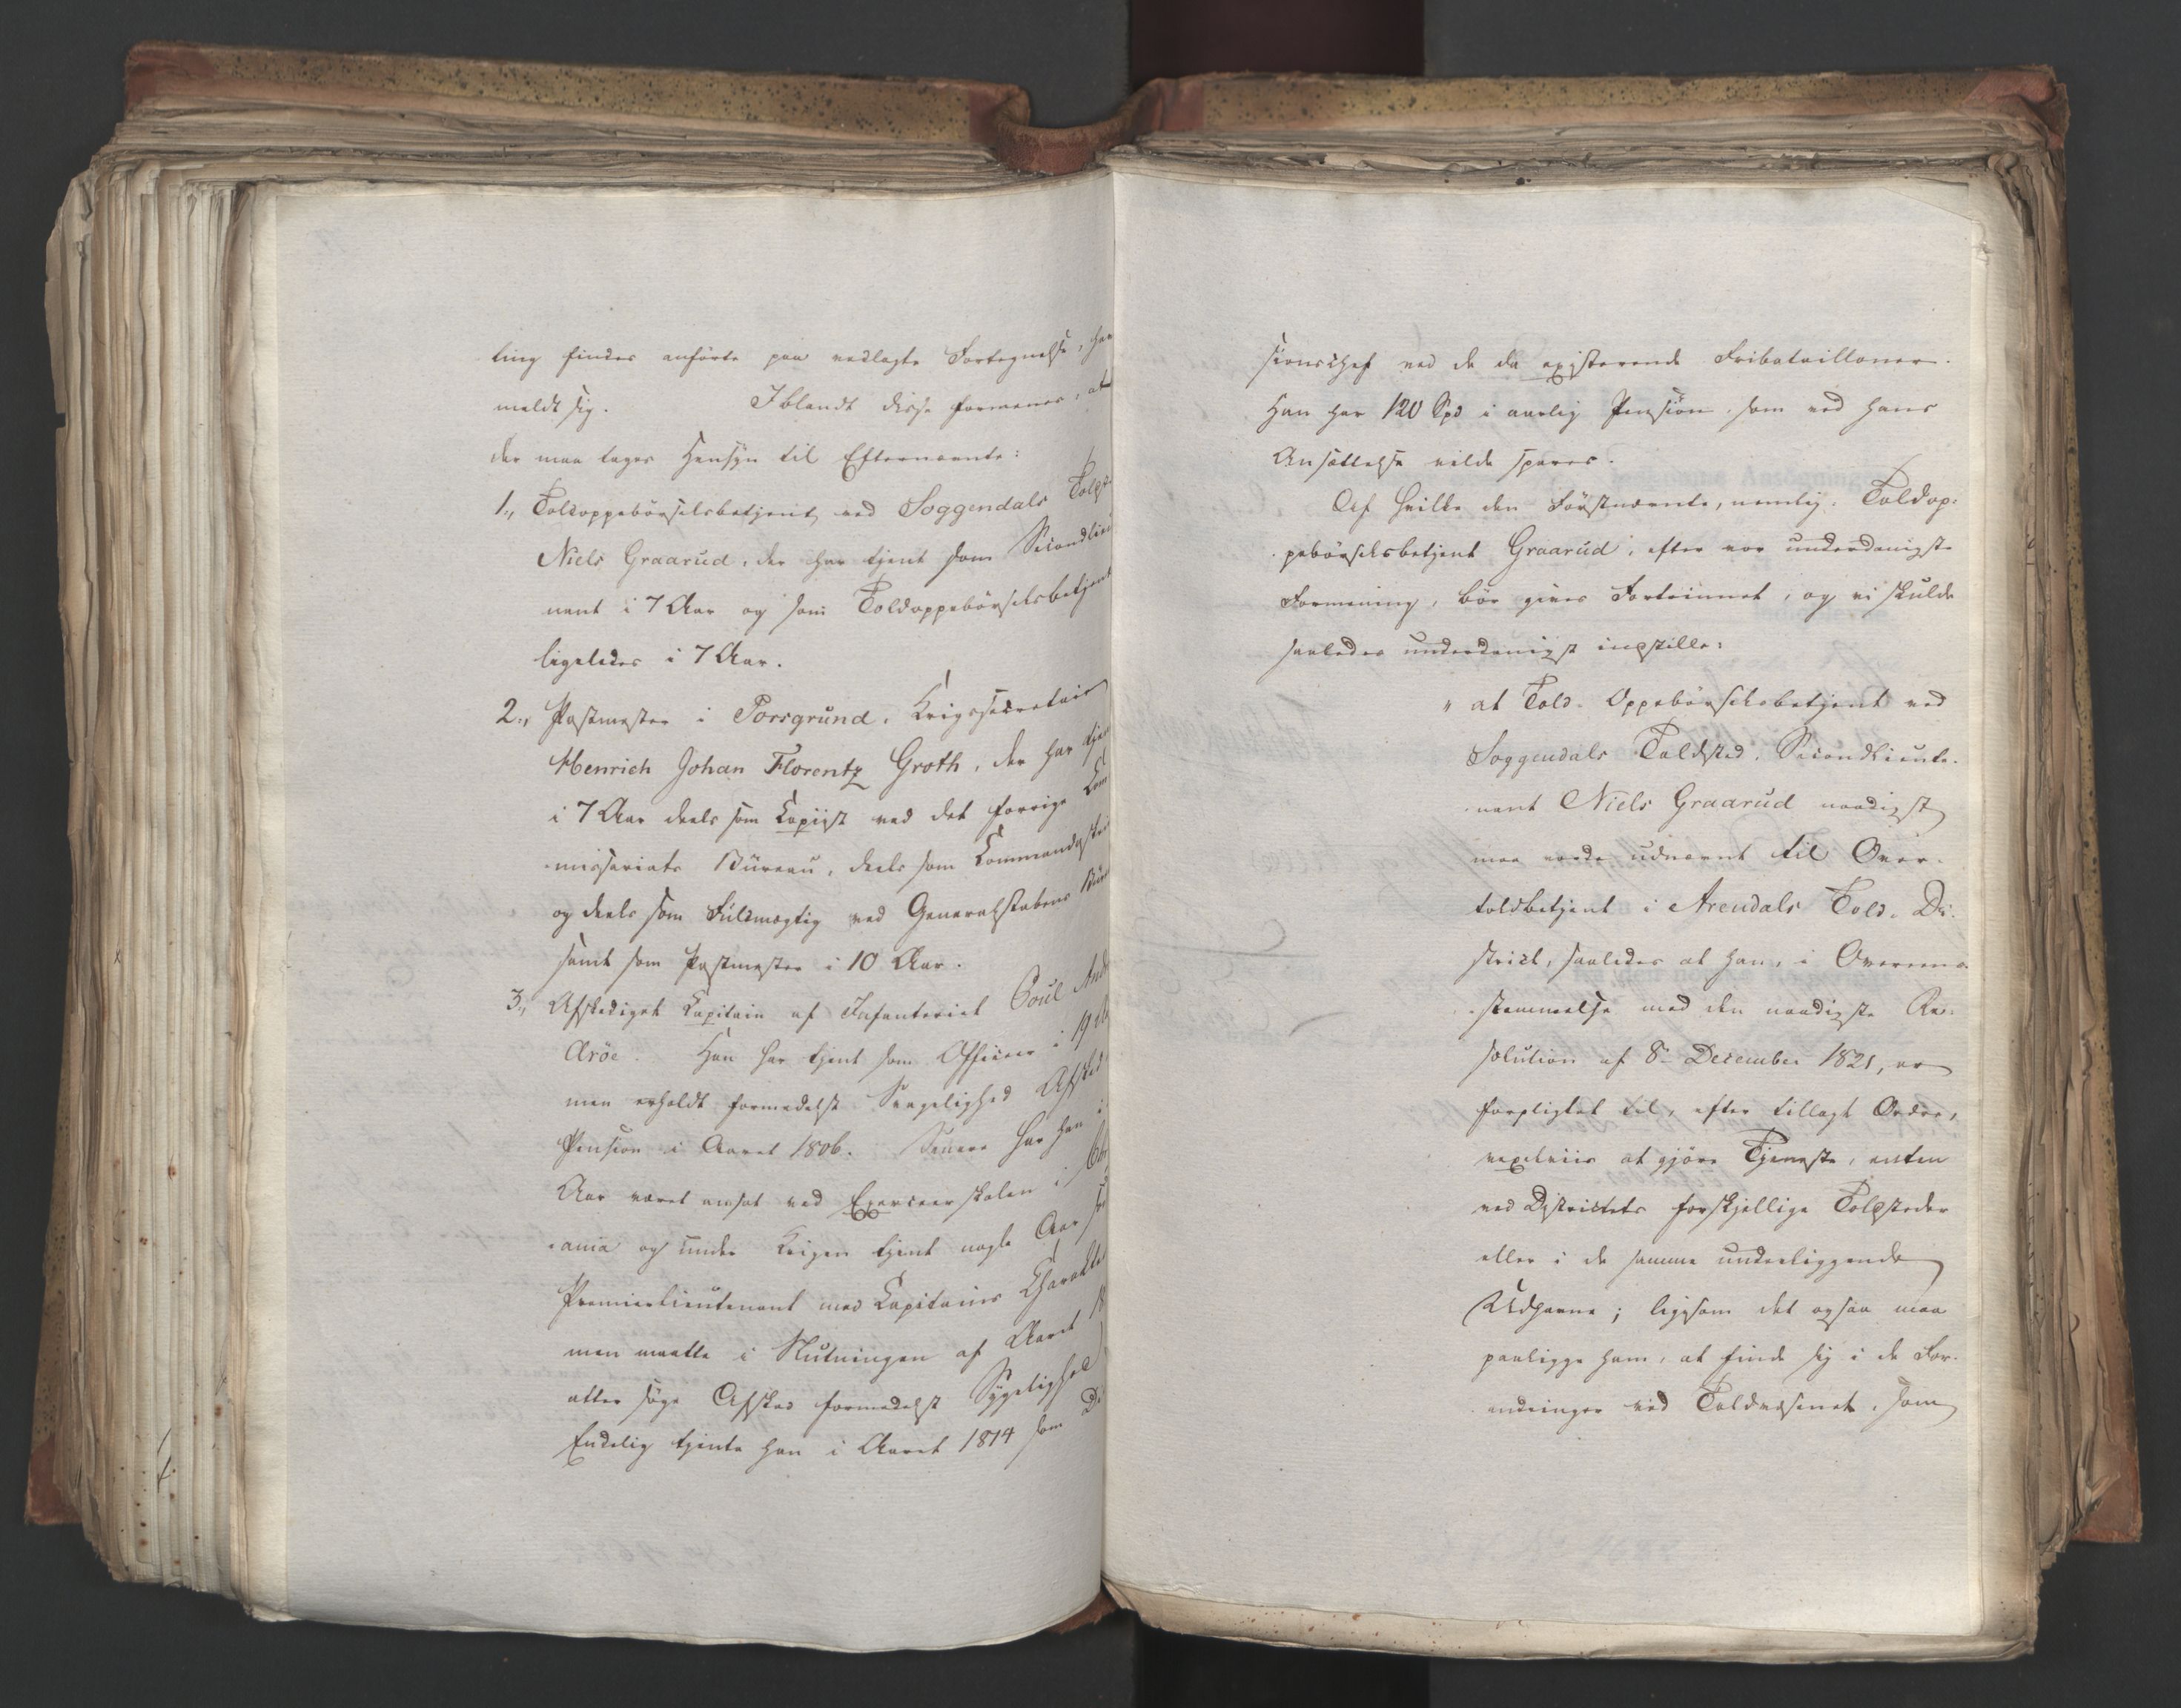 ling findes anførte paa vedlagte Fortegnelse, har
meldt sig. Iblandt disse formenes, at
der maa tages Hensyn til Efternævnte:
1., Toldoppebørselsbetjent ved Soggendals Told
Niels Graarud, der har tjent som Secondlieu
nant i 7 Aar og som Toldoppebørselsbetjent
ligeledes i 7 Aar.
2., Postmester i Porsgrund, Krigssecretair
Henrich Johan Florentz Groth, der har tjen
i 7 Aar deels som Copiist ved det forrige Com
missariats Büreau, deels som Commandes
og deels som Fuldmægtig ved Generalstabens Bür
samt som Postmester i 10 Aar.
3., Afskediget Capitain af Infanteriet Poul And
Aröe. Han har tjent som Officier i 19
men erholdt formedelst Svagelighed Afsked
Pension i Aaret 1806. Senere har han i
Aar været ansat ved Exerceerskolen i
ania og under Krigen tjent nogle Aar
Premierlieutenant med Capitains Charakte
men maatte i Slutningen af Aaret 18
atter søge Afsked formedelst Sygelighed
Endelig tjente han i Aaret 1814 som Di
sionschef ved de da existerende Fribatailloner.
Han har 120 Spd i aarlig Pension, som ved hans
Ansættelse vilde spares.
Af hvilke den Førstnævnte, nemlig, Toldop-
pebørselsbetjent Graarud, efter vor underdanigste
Formening, bør gives Fortrinnet, og vi skulde
saaledes underdanigst indstille:
" at Told-Oppebørselsbetjent ved
Soggendals Toldsted, Secondlieute-
nant Niels Graarud naadigst
maa vorde udnævnt til Over-
toldbetjent i Arendals Told-Di-
strict, saaledes at han, i Overeens-
stemmelse med den naadigste Re-
solution af 8de December 1821, er
forpligtet til, efter tillagt Ordre,
vexelviis at gjøre Tjeneste, enten
ved Districtets forskjellige Toldsteder
eller i de samme underliggende
Udhavne; ligesom det ogsaa maa
paaligge ham, at finde sig i de For-
andringer ved Toldvæsenet, som